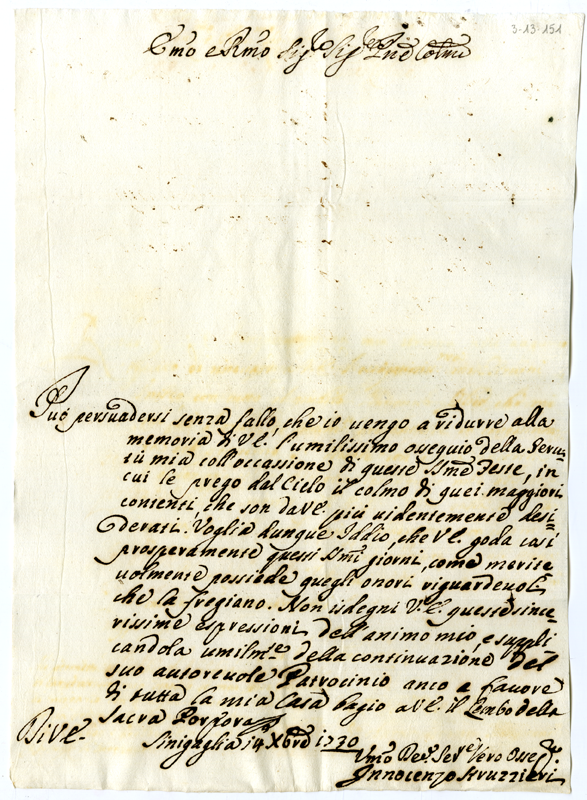 3-13-151
Em̃o e Rm̃o Sig.re Sig.re Prñe Colm̃o
Può persuadersi senza fallo, che io vengo a ridurre alla
memoria di V.E. l'umilissimo ossequio della Servi-
tù mia coll'occassione di queste SSm̃e Feste, in
cui le prego dal Cielo il colmo di quei maggiori
contenti, che son da V.E. più videntemente desi-
derati. Voglia dunque Iddio, che V.E. goda così
prosperamente questi SSm̃i giorni, come merite-
volmente possiede quegli onori riguardevoli,
che la fregiano. Non isdegni V.E. queste since-
rissime espressioni dell'animo mio, e suppli
candola umilm.te della continuazione del
suo autorevole Patrocinio anco a favore
di tutta la mia Casa bagio a V.E. il Lembo della
Sacra Porpora
Di V.E.
Sinigaglia 14 Xbre 1730
Um̃o Dev. Ser.e Vero Osseq.
Innocenzo Struzzieri